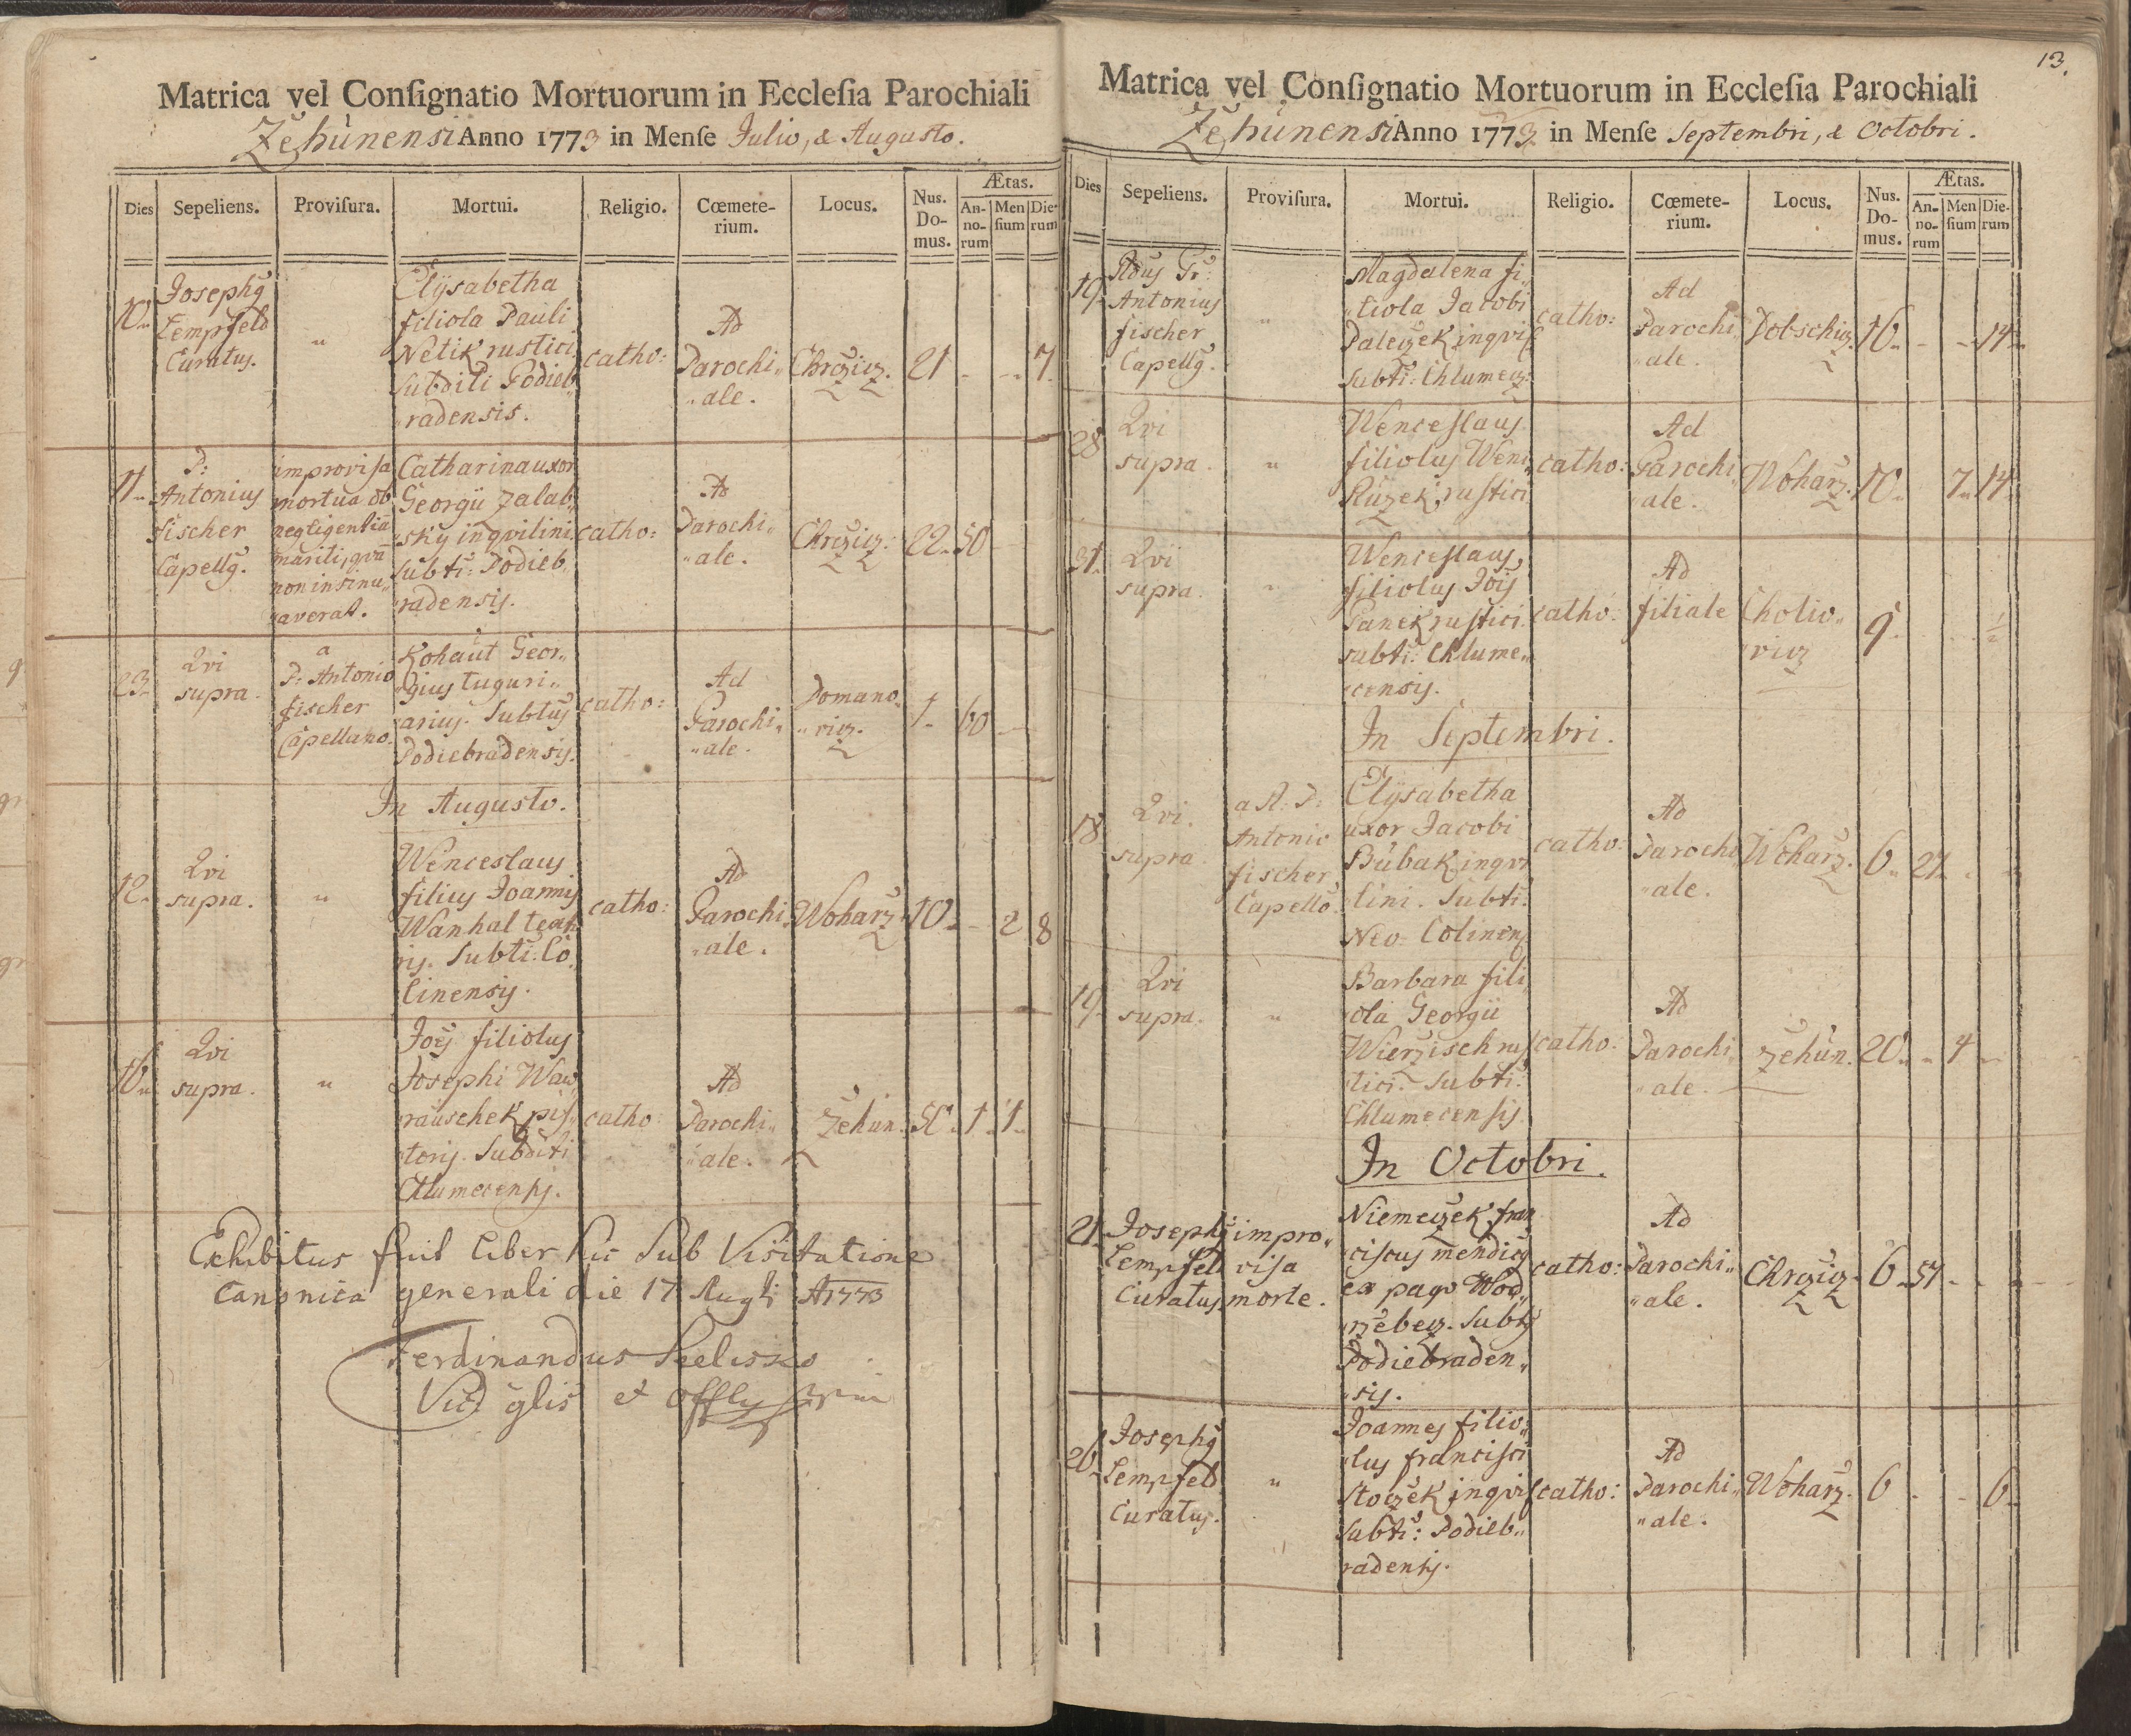 Matrica vel Conſignatio Mortuorum in Eccleſia Parochiali
Žehùnensi Anno 1773 in Menſe Julio, & Augusto.
Dies
Sepeliens.
Proviſura.
Mortui.
Religio.
Cœmete-
rium.
Locus.
Nus.
Do-
mus.
Ætas.
An-
no-
rum
Men
ſium
Die-
rum
10
Josephg
Lempfeld
Curatus.
"
Elÿsabetha
filiola Pauli
Netik rustici
Subditi Podieb
radensis.
catho:
Ad
Parochi„
„ale.
Chrcžicz.
21
7
11
P:
Antonius
Fischer
Capellg.
improvisa
mortua ob
negligentiã
mariti, qvã
non insinu„
„averat.
Catharina uxor
Georgii Zalab„
„skÿ inqvilini
Subti: Podieb„
radensis.
catho:
Ad
Parochi„
„ale.
Chrcžicz.
22 50
23
Qvi
supra.
a
P: Antonio
fischer
Capellano.
Kohaut Geor„
„gius tuguri„
„arius. Subtus
Podiebradensis.
catho:
Ad
Parochi„
„ale.
Domano„
„vicz.
1 60
In Augusto.
12
Qvi
supra.
"
Wenceslaus
filius Joannis
Wanhal texto
ris. Subti. Co„
linensis.
catho:
Ad
Parochi„
„ale.
Woharž
10 2 8
16
Qvi
supra.
"
Jois filiolus
Josephi Waw
rauschek pis„
„toris. Subditi
Chlumecensis.
catho:
Ad
Parochi„
„ale.
Žehun.
50 1 1
Exhibitus fuit liber hic Sub Visitatione
Canonica generali die 17 Augti A 1773
Ferdinandus
Vic glis et
13.
Matrica vel Conſignatio Mortuorum in Eccleſia Parochiali
Žehùnensi Anno 1773 in Menſe Septembri, & Octobri.
Dies
Sepeliens.
Proviſura.
Mortui.
Religio.
Cœmete-
rium.
Locus.
Nus.
Do-
mus.
Ætas.
An-
no-
rum
Men
ſium
Die-
rum
19
Rdus Pr:
Antonius
fischer
Capellg.
"
Magdalena fi„
„liola Jacobi
Daleczek inqvil
Subti: Chlumecz:
catho:
Ad
Parochi
„ale.
Dobschicz.
16 14
28
Qvi
supra.
"
Wenceslaus
filiolus Wenc„
Růžek rustici
catho:
Ad
Parochi„
„ale.
Woharž.
10 7 14
31
Qvi
supra.
"
Wenceslaus
filiolus Jois
Panek rustici
subti: Chlume„
censis.
catho:
Ad
filiale
Cholio„
vicz
9
In Septembri.
18
Qvi
supra
a R: P:
Antonio
fischer
Capello.
Elÿsabetha
uxor Jacobi
Bùbak inqvi
lini. Subti:
Neo Colinens
catho:
Ad
Parochi
„ale.
Woharž.
6 27
19
Qvi
supra.
"
Barbara fili„
ola Georgii
Wieržisch rus
tici. Subti:
Chlumecensis
catho:
Ad
Parochi„
„ale.
Žehùn.
20 4
In Octobri.
21
Josephg
Lempfeld
Curatus
impro„
visa
morte.
Niemeczek fran
ciscus mendics
ex pago Wod„
ržebecz. Subts
Podiebraden„
„sis.
catho:
Ad
Parochi„
„ale.
Chrcžicz.
6 57
26
Josephg
Lempfeld
Curatus.
"
Joannes filio„
„lus francisci
Stoczek inqvil
Subti: Podieb„
radensis.
catho:
Ad
Parochi„
„ale.
Woharž.
6 6